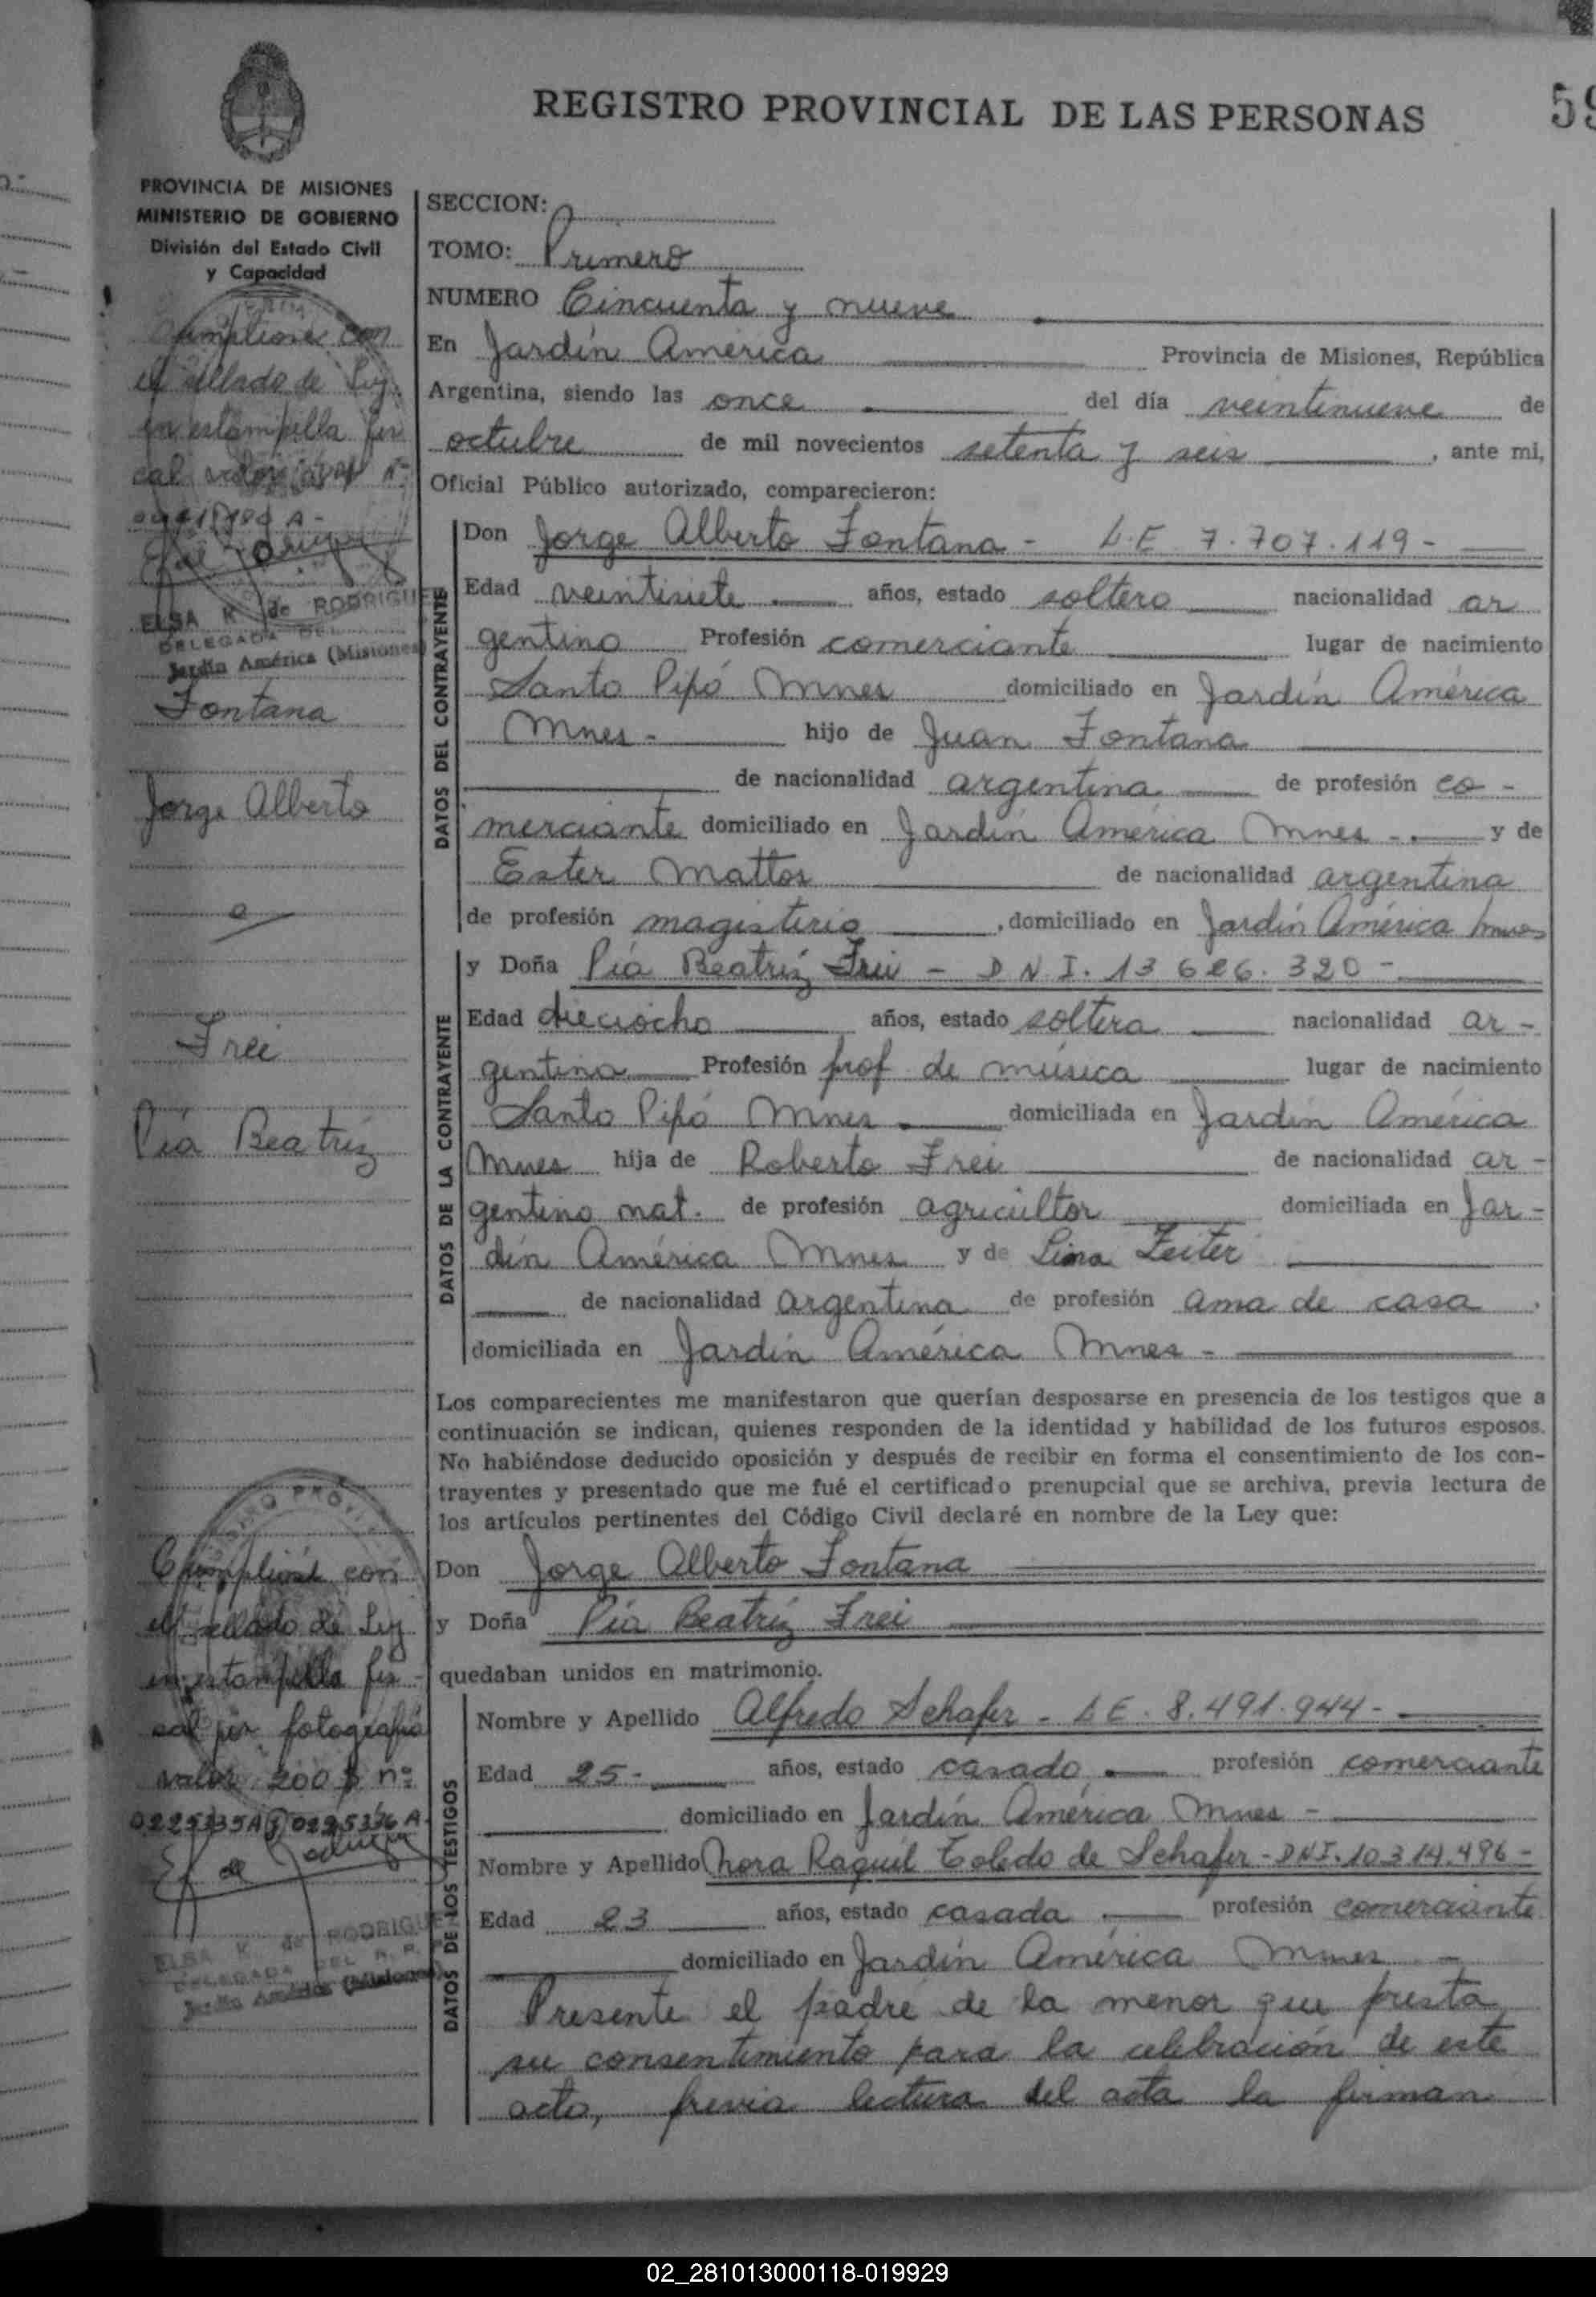 REGISTRO PROVINCIAL DE LAS PERSONAS
59
PROVINCIA DE MISIONES
MINISTERIO DE GOBIERNO
División del Estado Civil
y Capacidad
el sellado de Ley
en estampilla fis
cal valor
ELSA K de RODRIGUE
DELEGADA DEL
Jardín América (Misiones)
Fontana
Jorge Alberto
a
Frei
Pía Beatríz
con
el sellado de Ley
en estampilla fis-
cal por fotografía
valor 200 $ nº
0225335A y 0225336 A
ELSA K de RODRIGUE
DELEGADA DEL R. P.
Jardín América (Misiones)
SECCION:
TOMO: Primero
NUMERO Cincuenta y nueve
En Jardín América Provincia de Misiones, República
Argentina, siendo las once del día veintinueve de
octubre de mil novecientos setenta y seis, ante mi,
Oficial Público autorizado, comparecieron:
DATOS DEL CONTRAYENTE
Don Jorge Alberto Fontana - L.E 7.707.119 -
Edad veintisiete años, estado soltero nacionalidad ar
gentino Profesión comerciante lugar de nacimiento
Santo Pipó Mnes domiciliado en Jardín América
Mnes - hijo de Juan Fontana
de nacionalidad argentina de profesión co -
merciante domiciliado en Jardín América Mnes - y de
Ester Mattos de nacionalidad argentina
de profesión magisterio, domiciliado en Jardín América Mnes
DATOS DE LA CONTRAYENTE
y Doña Pía Beatríz Frei - D N I. 13 6 6. 320 -
Edad dieciocho años, estado soltera nacionalidad ar -
gentina Profesión prof de música lugar de nacimiento
Santo Pipó Mnes domiciliada en Jardín América
Mnes hija de Roberto Frei de nacionalidad ar -
gentino nat. de profesión agricultor domiciliada en Jar -
dín América Mnes y de Lina Zeiter
de nacionalidad argentina de profesión ama de casa.
domiciliada en Jardín América Mnes -
Los comparecientes me manifestaron que querían desposarse en presencia de los testigos que a
continuación se indican, quienes responden de la identidad y habilidad de los futuros esposos.
No habiéndose deducido oposición y después de recibir en forma el consentimiento de los con-
trayentes y presentado que me fué el certificado prenupcial que se archiva, previa lectura de
los artículos pertinentes del Código Civil declaré en nombre de la Ley que:
Don Jorge Alberto Fontana
y Doña Pía Beatríz Frei
quedaban unidos en matrimonio.
DATOS DE LOS TESTIGOS
Nombre y Apellido Alfredo Schafer - L E. 8.491.944 -
Edad 25 - años, estado casado profesión comerciante
domiciliado en Jardín América Mnes -
Nombre y Apellido Nora Raquel Toledo de Schafer - DNI. 10314.496 -
Edad 23 años, estado casada profesión comerciante
domiciliado en Jardín América Mnes -
Presente el padre de la menor que presta
su consentimiento para la celebración de este
acto, previa lectura del acta la firman
02_281013000118-019929